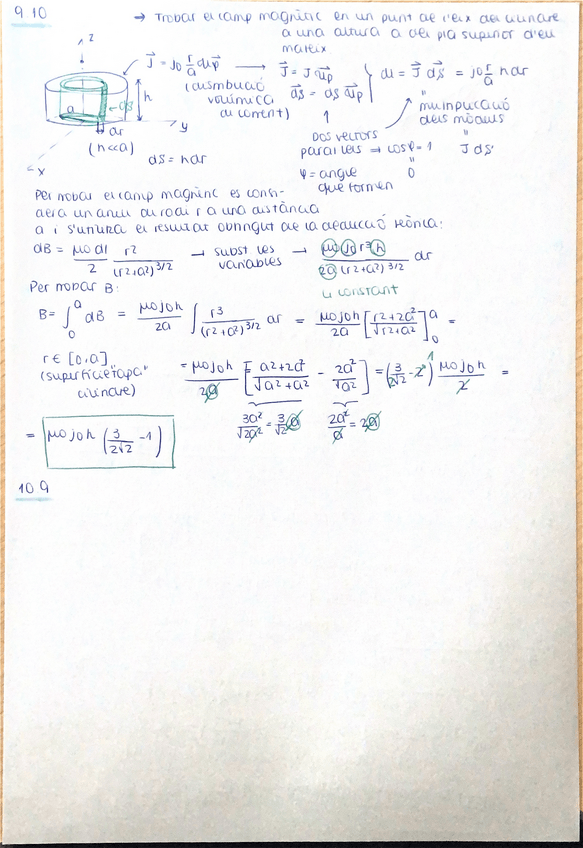 9 10
→ Trobar el camp magnètic en un punt de l'eix del cilindre
a una altura a del pla superior d'ell
mateix
z
J⃗ = j₀ r/a u⃗φ → J⃗ = J u⃗φ } dI = J⃗ dS⃗ = j₀ r/a h dr
(distribució volúmica de corrent)
dS⃗ = dS u⃗φ
multiplicació dels mòduls
J dS
dos vectors paral·lels → cosφ = 1
φ = angle que formen
0
a
dS
h
y
dr
(h<<a)
x
dS = h dr
Per trobar el camp magnètic es consi-
dera un anell de radi r a una distància
a i s'utilitza el resultat obtingut de la deducció teòrica:
dB = μ₀ dI / 2 · r² / (r²+a²)^3/2 → subst les variables → μ₀ j₀ r³ h / 2a (r²+a²)^3/2 dr
Per trobar B:
↳ constant
B = ∫₀^a dB = μ₀ j₀ h / 2a ∫ r³ / (r²+a²)^3/2 dr = μ₀ j₀ h / 2a [ r²+2a² / √r²+a² ]₀^a =
r ∈ [0,a]
(superfície "tapa" cilindre)
= μ₀ j₀ h / 2a [ a²+2a² / √a²+a² − 2a² / √a² ] = (3 / 2√2 − 2) 1 μ₀ j₀ h / 2 =
3a² / √2a² = 3/√2 a
2a² / a = 2a
= μ₀ j₀ h (3 / 2√2 − 1)
10 9